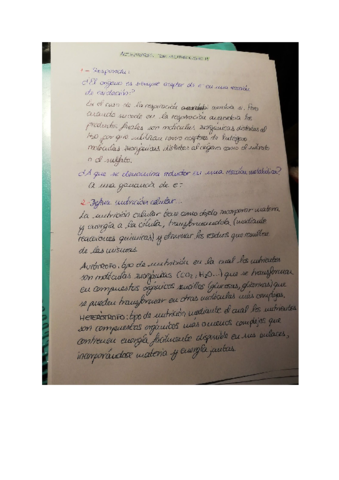 1.- Responde:
¿El oxígeno es siempre aceptor de e- en una reacción
de oxidación?
En el caso de la respiración aerobia, e-. Pero
cuando ocurre en la respiración anaerobia los
productos finales son moléculas inorgánicas distintas al
H2O por que utilizan como aceptores de hidrógeno
moléculas inorgánicas distintas al oxígeno como el nitrato
o el sulfato.
¿A qué se denomina reductor en una reacción metabólica?
A una ganancia de e-
2.- Define: nutrición celular...
La nutrición celular tiene como objeto incorporar materia
y energía a la célula, transformándola (mediante
reacciones químicas) y eliminar los residuos que resulten
de las mismas.
Autótrofo: tipo de nutrición en la cual los nutrientes
son moléculas inorgánicas (CO2, H2O...) que se transforman
en compuestos orgánicos sencillos (glucosa, glicerina) que
se pueden transformar en otras moléculas más complejas.
Heterótrofo: tipo de nutrición mediante el cual los nutrientes
son compuestos orgánicos más o menos complejos que
contienen energía fácilmente disponible en sus enlaces,
incorporándose materia y energía juntas.